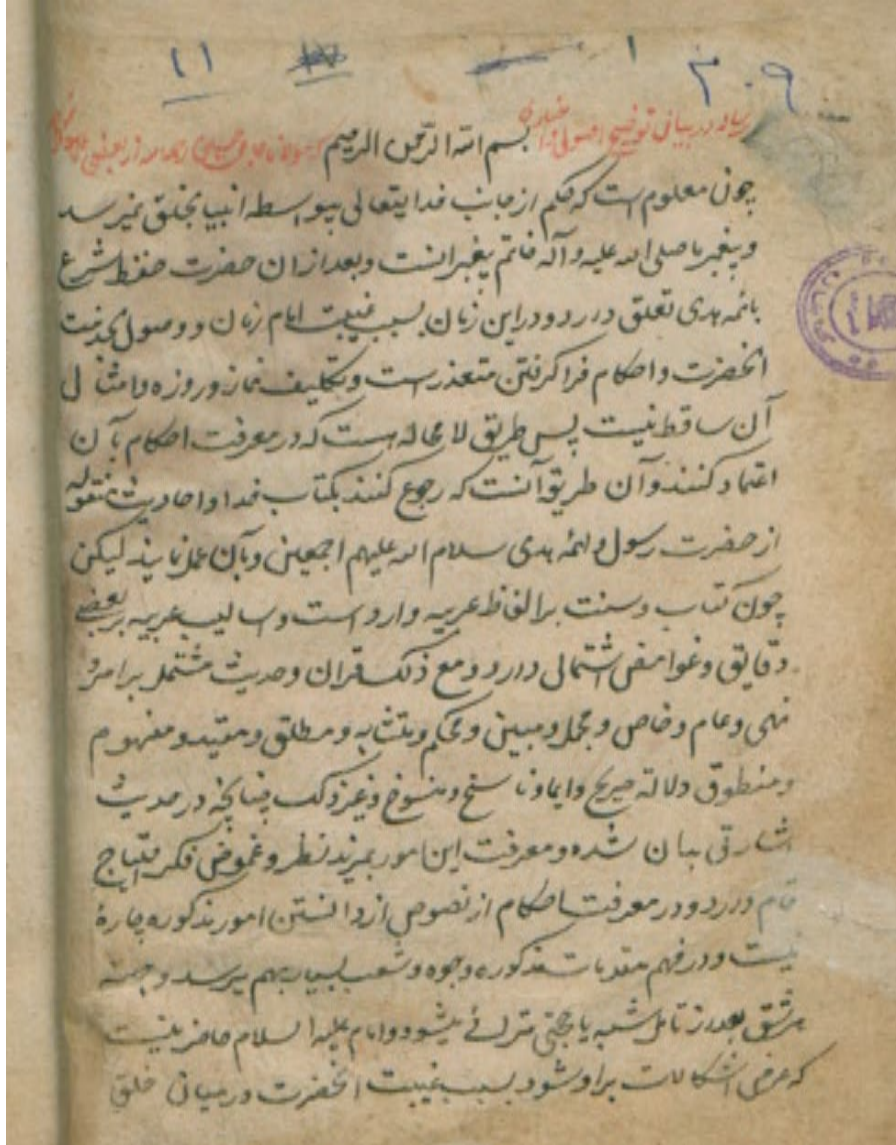 ۱۱ ۱ ۳۰۹
رساله در بیان توضیح اصولی و اخباری
بسم الله الرحمن الرحیم
چون معلوم است که حکم از جانب خدایتعالی بیواسطه انبیا بخلق نمیرسد
و پیغمبر ما صلی الله علیه و آله خاتم پیغمبرانست و بعد از ان حضرت حفظ شرع
بائمه هدی تعلق دارد و در این زمان بسبب غیبت امام زمان و وصول بخدمت
انحضرت و احکام فرا گرفتن متعذر است و تکلیف نماز و روزه و امثال
آن ساقط نیست پس طریق لا محاله هست که در معرفت احکام بآن
اعتماد کنند و آن طریق آنست که رجوع کنند بکتاب خدا و احادیث منقوله
از حضرت رسول و ائمه هدی سلام الله علیهم اجمعین و بآن عمل نمایند لیکن
چون کتاب و سنت بر الفاظ عربیه وارد است و اسالیب عربیه بر بعضی
دقایق و غوامض اشتمال دارد و مع ذلک قران و حدیث مشتمل بر امر و
نهی و عام و خاص و مجمل و مبین و محکم و متشابه و مطلق و مقید و مفهوم
و منطوق و دلالة صریح و ایما و ناسخ و منسوخ و غیر ذلک چنانچه در حدیث
اشارتی بیان شده و معرفت این امور بمزید نظر و غموض فکر احتیاج
تمام دارد و در معرفت احکام از نصوص از دانستن امور مذکوره چارهٔ
نیست و در فهم مقدمات مذکوره وجوه و شعب بسیار بهم میرسد و جهت
هر شق بعد از تامل شبه یا حجتی متراٸی میشود و امام علیه السلام حاضر نیست
که عرض اشکالات بر او شود بسبب غیبت انحضرت در میان خلق